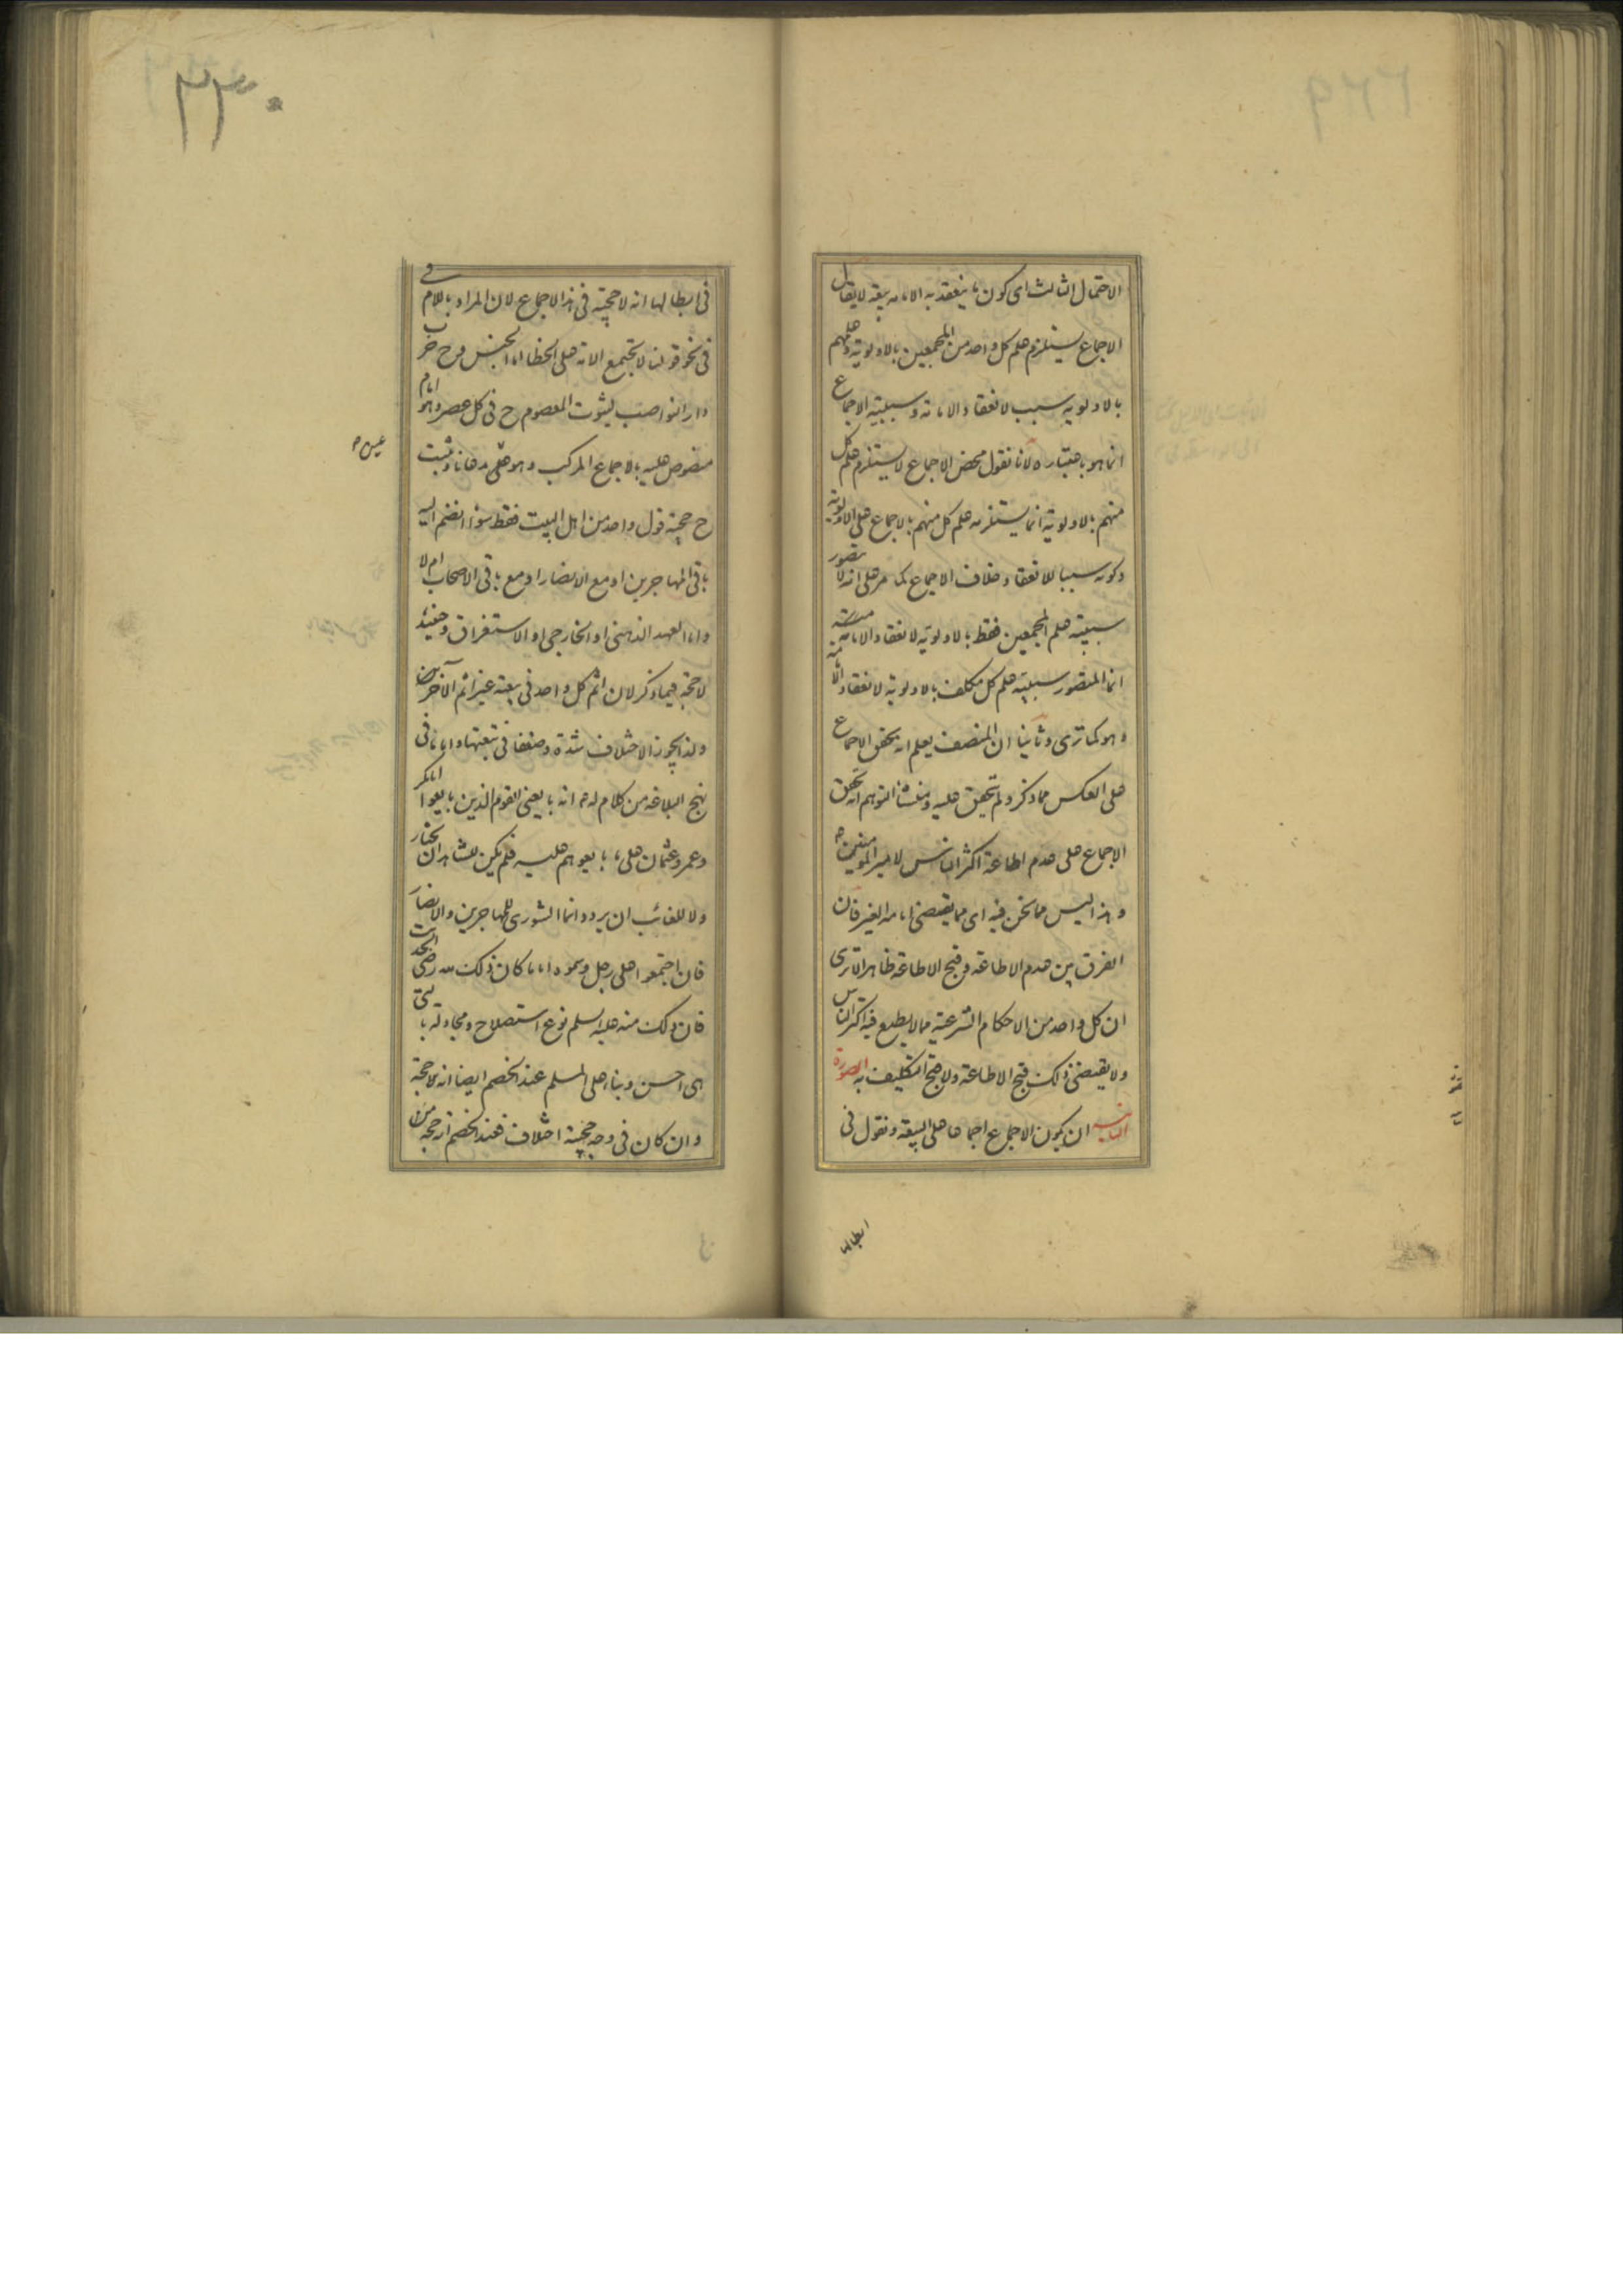 الاحتمال الثالث اى كون ما ينعقد به الامامة بيعة لا يقال
الاجماع يستلزم علم كل واحد من المجمعين بالاولوية وعلمهم
بالاولوية سبب لانعقاد الامامة وسببية الاجماع
انما هو باعتباره لانا نقول محض الاجماع لا يستلزم علم كل
منهم بالاولوية انما يستلزمه علم كل منهم بالاجماع على الاولوية
وكونه سببا للانعقاد خلاف الاجماع كما مر على انه لا يتصور
سببية علم المجمعين فقط بالاولوية لانعقاد الامامة
انما المتصور سببية علم كل مكلف بالاولوية لانعقاد الامامة
وهو كما ترى وثانيا ان المنصف يعلم انه تحقق الاجماع
على العكس مما ذكر ولم يتحقق عليه ومنشأ التوهم انه تحقق
الاجماع على عدم اطاعة اكثر الناس لامير المؤمنين
وهذا ليس مما نحن فيه اى مما يقتضى امامة الغير فان
الفرق بين عدم الاطاعة وقبح الاطاعة ظاهر الا ترى
ان كل واحد من الاحكام الشرعية مما لا يطيع فيه اكثر الناس
ولا يقتضى ذلك قبح الاطاعة ولا قبح التكليف به الصورة
الثانية ان يكون الاجماع اجماعا على البيعة ونقول فى
ابطالها
٣٣٠
فى ابطالها انه لا حجية فى هذا الاجماع لان المراد باللام
فى نحو قولنا لا تجتمع الامة على الخطا اما الجنس وح خرب
دار النواصب لثبوت المعصوم ح فى كل عصر وهو امام
منصوص عليه بالاجماع المركب وهو على مدعانا وثبت
ح حجية قول واحد من اهل البيت فقط سواء انضم اليه
باقى المهاجرين او مع الانصار او مع باقى الاصحاب ام لا
واما العهد الذهنى او الخارجى او الاستغراق وحينئذ
لا حجة فيما ذكر لان اثم كل واحد فى بيعته غير اثم الآخرين
ولذا يجوز الاختلاف شدة وضعفا فى تبعتها واما ما فى
نهج البلاغة من كلام له انه بايعنى القوم الذين بايعوا ابا بكر
وعمر وعثمان على ما بايعوهم عليه فلم يكن للشاهد ان يختار
ولا للغائب ان يرد وانما الشورى للمهاجرين والانصار
فان اجتمعوا على رجل وسموه اماما كان ذلك لله رضى
فان ذلك منه عليه السلم نوع استصلاح ومجادلة بالتى
هى احسن وبناء على المسلم عند الخصم ايضا انه لا حجة
وان كان فى وجه حجية اختلاف فعند الخصم انه حجة من